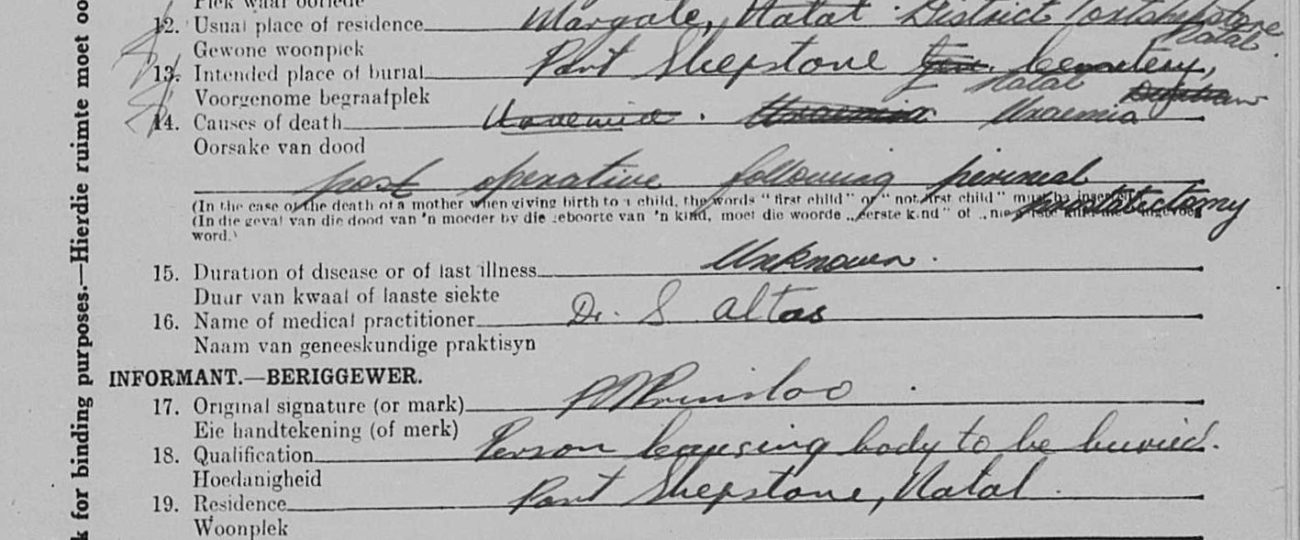 Plek waar oorlede
12. Usual place of residence Margate, Natal District Portshepstone
Natal.
Gewone woonplek
13. Intended place of burial Port Shepstone Cemetery,
Natal
Voorgenome begraafplek
14. Causes of death Uraemia
Oorsake van dood
post operative following perineal
prostatectomy
(In the case of the death of a mother when giving birth to a child, the words "first child" or "not first child" must be inserted.
(In die geval van die dood van 'n moeder by die geboorte van 'n kind, moet die woorde „eerste kind" of „nie eerste kind" ingevoeg
word.)
15. Duration of disease or of last illness Unknown.
Duur van kwaal of laaste siekte
16. Name of medical practitioner Dr. S Altas
Naam van geneeskundige praktisyn
INFORMANT.—BERIGGEWER.
17. Original signature (or mark) Prinsloo
Eie handtekening (of merk)
18. Qualification Person causing body to be buried.
Hoedanigheid
19. Residence Port Shepstone, Natal.
Woonplek
k for binding purposes.—Hierdie ruimte moet oo